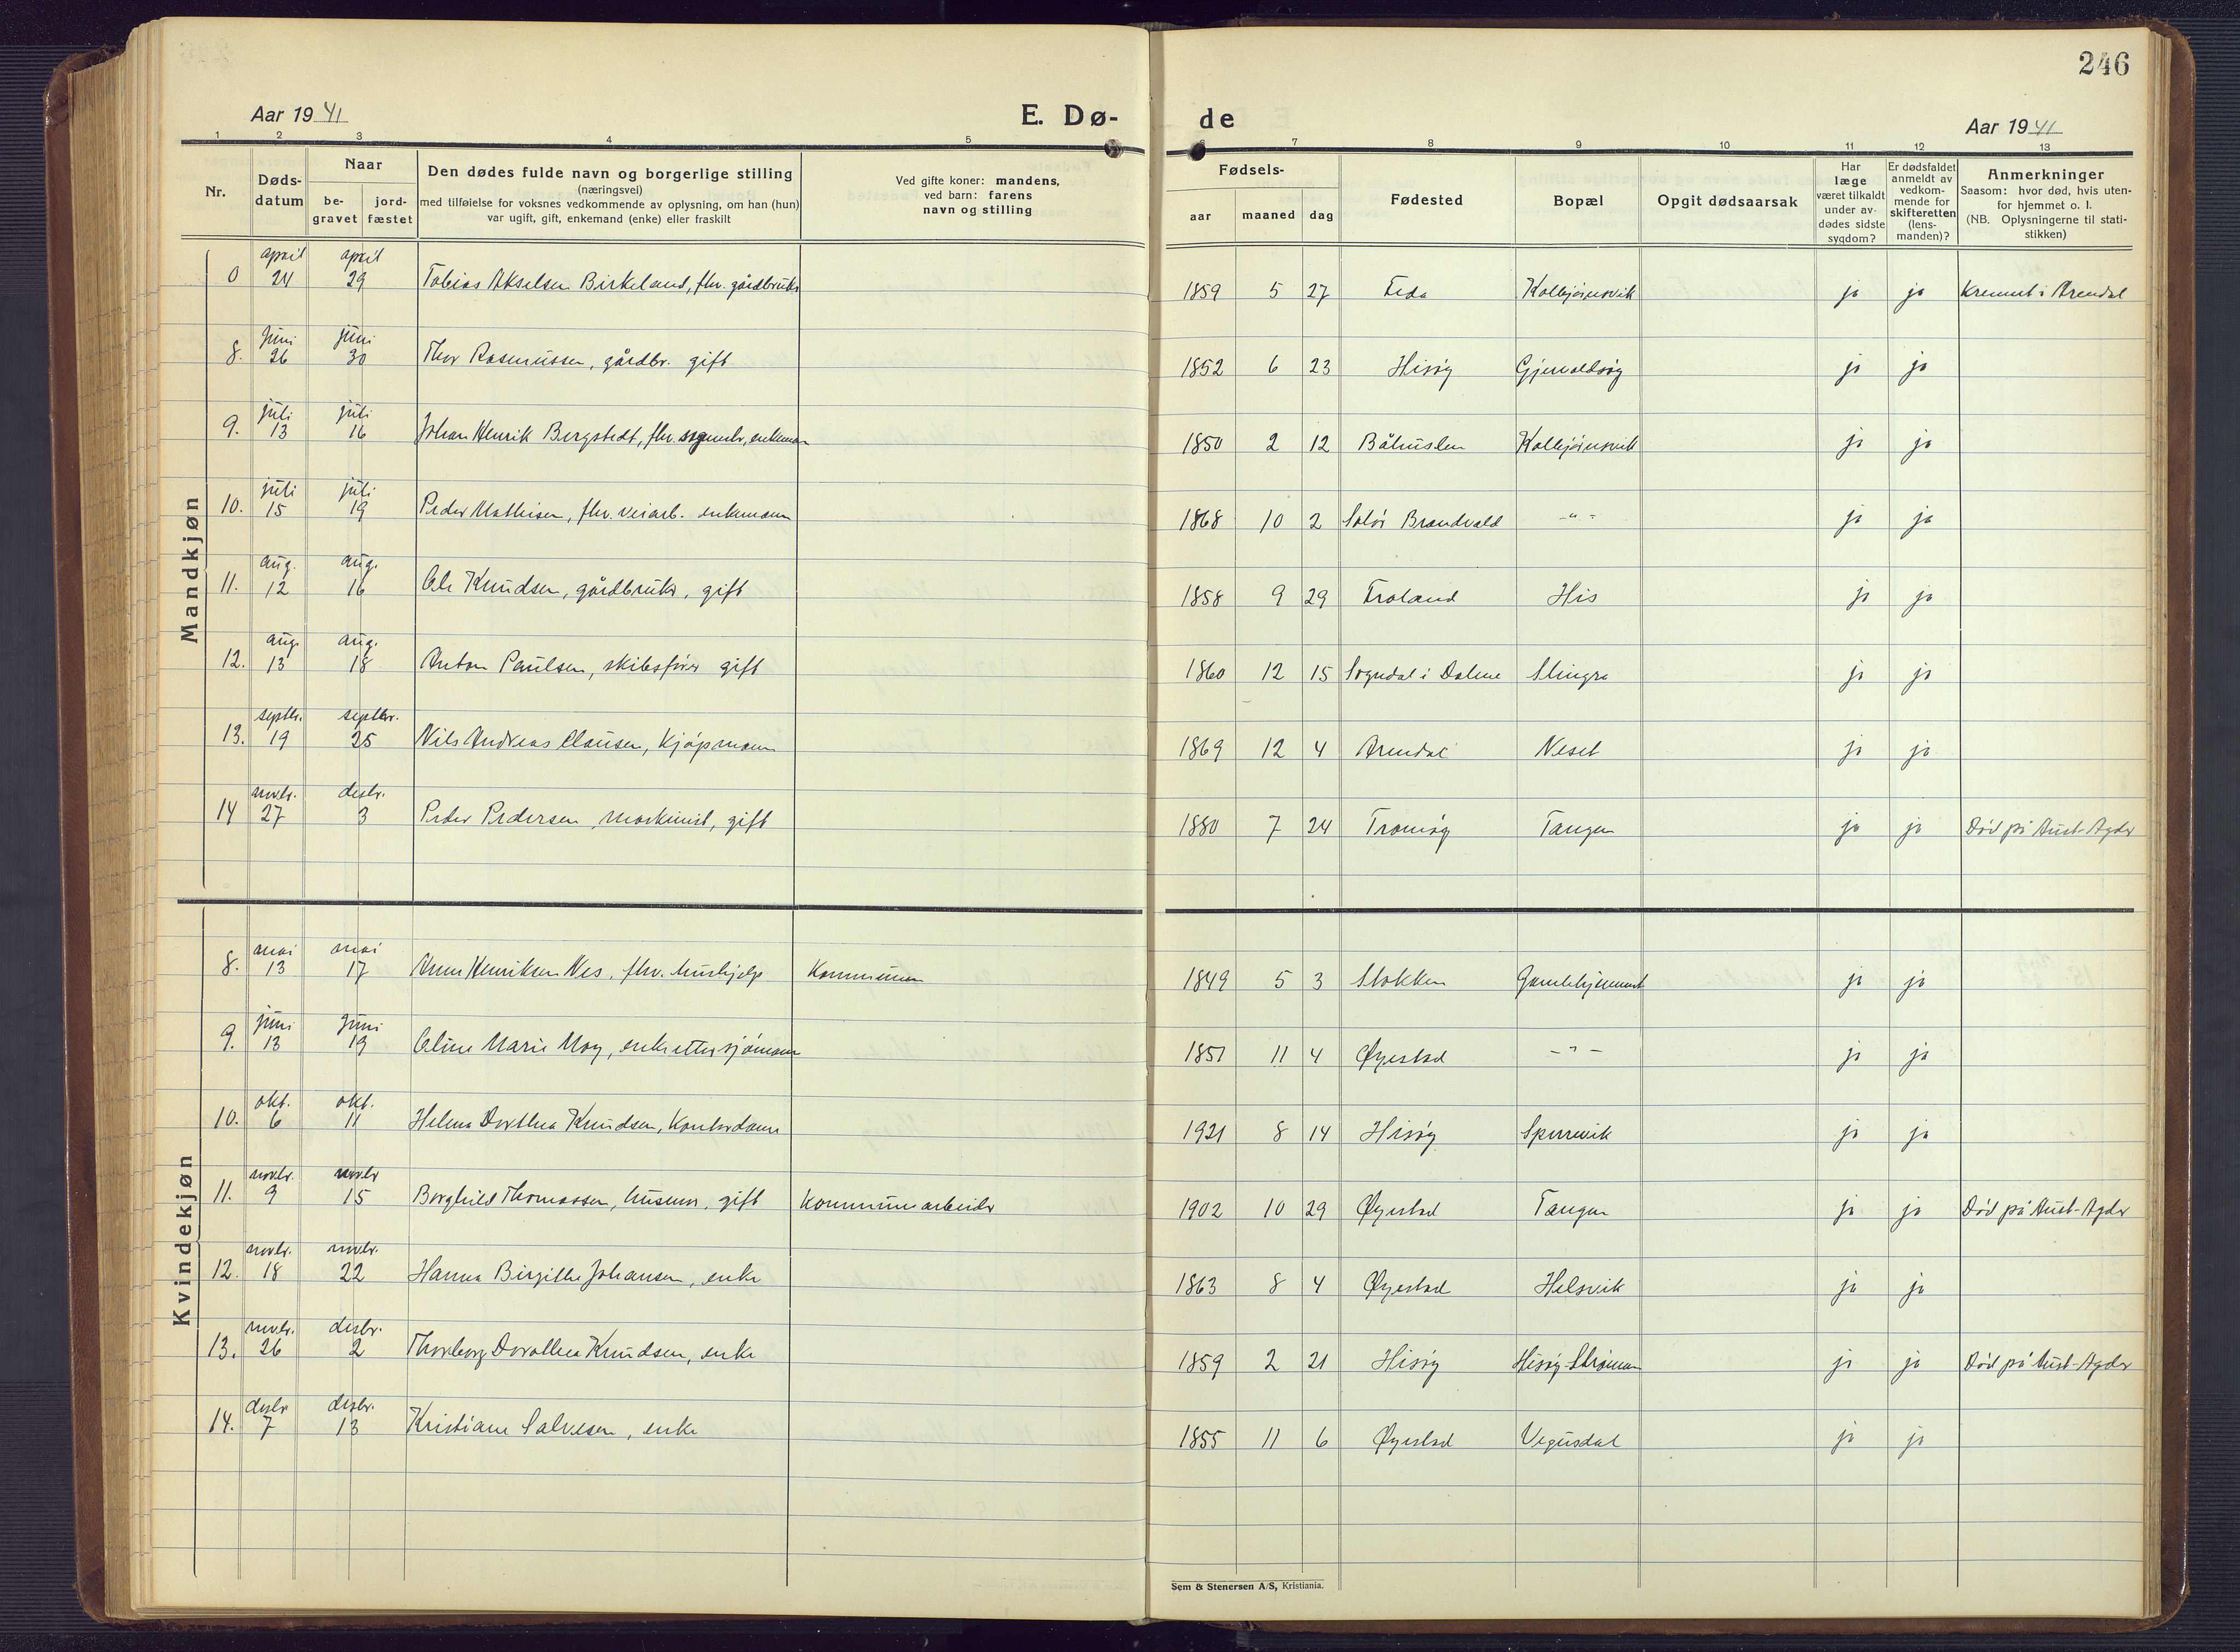 246
Aar 1941
E. Dø-
de
Aar 1941
1 2 3 4 5 7 8 9 10 11 12 13
Nr.
Døds-
datum
Naar
be-
gravet
jord-
fæstet
Den dødes fulde navn og borgerlige stilling
(næringsvei)
med tilføielse for voksnes vedkommende av oplysning, om han (hun)
var ugift, gift, enkemand (enke) eller fraskilt
Ved gifte koner: mandens,
ved barn: farens
navn og stilling
Fødsels-
aar
maaned
dag
Fødested
Bopæl
Opgit dødsaarsak
Har
læge
været tilkaldt
under av-
dødes sidste
sygdom?
Er dødsfaldet
anmeldt av
vedkom-
mende for
skifteretten
(lens-
manden)?
Anmerkninger
Saasom: hvor død, hvis uten-
for hjemmet o. l.
(NB. Oplysningerne til stati-
stikken)
Mandkjøn
april april
0 24 29 Tobias Akselsen Birkeland, fhv. gårdbruker 1859 5 27 Feda Kolbjørnsvik ja ja Kremert i Arendal
juni juni
8. 26 30 Thor Rasmussen, gårdbr. gift 1852 6 23 Hisøy Gjervoldsøy ja ja
juli juli
9. 13 16 Johan Henrik Bergstedt, fhv. enkemann 1850 2 12 Båhuslen Kolbjørnsvik ja ja
juli juli
10. 15 19 Peder Mathisen, fhv. veiarb. enkemann 1868 10 2 Solør Brandvold -"- ja ja
aug. aug.
11. 12 16 Ole Knudsen, gårdbruker, gift 1858 9 29 Froland His ja ja
aug. aug.
12. 13 18 Anton Paulsen, skibsfører gift 1860 12 15 Sogndal i Dalene Slingra ja ja
septbr. septbr.
13. 19 25 Nils Andreas Clausen, Kjøpmann 1869 12 4 Arendal Neset ja ja
novbr. desbr.
14 27 3 Peder Pedersen maskinist, gift 1880 7 24 Tromøy Tangen ja ja Død på Aust-Agder
Kvindekjøn
mai mai
8. 13 17 Anne Henriksen Nes, fhv. hushjelp Kommunen 1849 5 3 Stokken Gamlehjemmet ja ja
juni juni
9. 13 19 Oline Marie Moy, enke etter sjømann 1851 11 4 Øyestad -"- ja ja
okt. okt.
10. 6 11 Helene Dorthea Knudsen, Kontordame 1921 8 14 Hisøy Spervik ja ja
novbr. novbr
11. 9 15 Borghild Thomassen, husmor, gift Kommunearbeider 1902 10 29 Øyestad Tangen ja ja Død på Aust-Agder
novbr. novbr.
12. 18 22 Hanna Birgitte Johansen, enke 1863 8 4 Øyestad Helsvik ja ja
novbr. desbr.
13. 26 2 Thorborg Dorothea Knudsen, enke 1859 2 21 Hisøy Hisøy-Strømmen ja ja Død på Aust-Agder
desbr desbr.
14. 7 13 Kristiane Salvesen, enke 1855 11 6 Øyestad Vegusdal ja ja
Sem & Stenersen A/S, Kristiania.